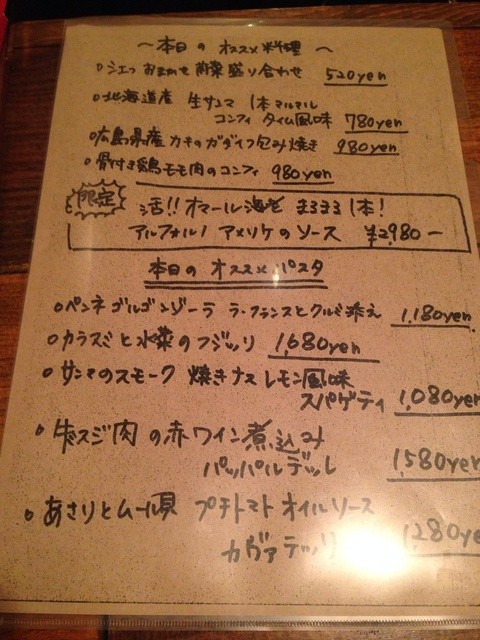 〜本日の オススメ料理〜
○シェフ おまかせ 前菜盛り合わせ 520yen
○北海道産 生サンマ 1本マルマル
コンフィ タイム風味 780yen
○広島県産 カキのカダイフ包み焼き 980yen
○骨付き鶏モモ肉のコンフィ 980yen
限定 活!! オマール海老 まるまる1本!
アルフォルノ アメリケのソース ¥2,980ー
本日の オススメパスタ
○ペンネ ゴルゴンゾーラ ラ・フランスとクルミ添え 1,180yen
○カラスミと水菜のフジッリ 1,680yen
○サンマのスモーク 焼きナス レモン風味
スパゲティ 1,080yen
○牛スジ肉の赤ワイン煮込み
パッパルデッレ 1,580yen
○あさりとムール貝 プチトマト オイルソース
カヴァテッリ 1,280ye